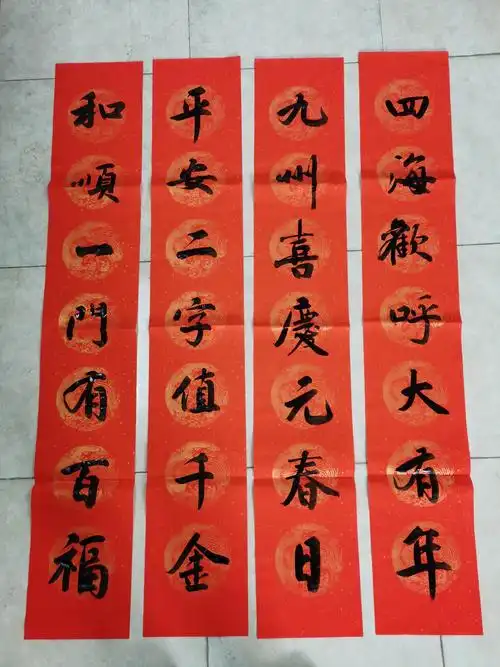 四海歡呼大有年
九州喜慶元春日
平安二字值千金
和順一門有百福